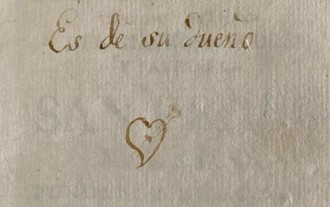 Es de su dueño